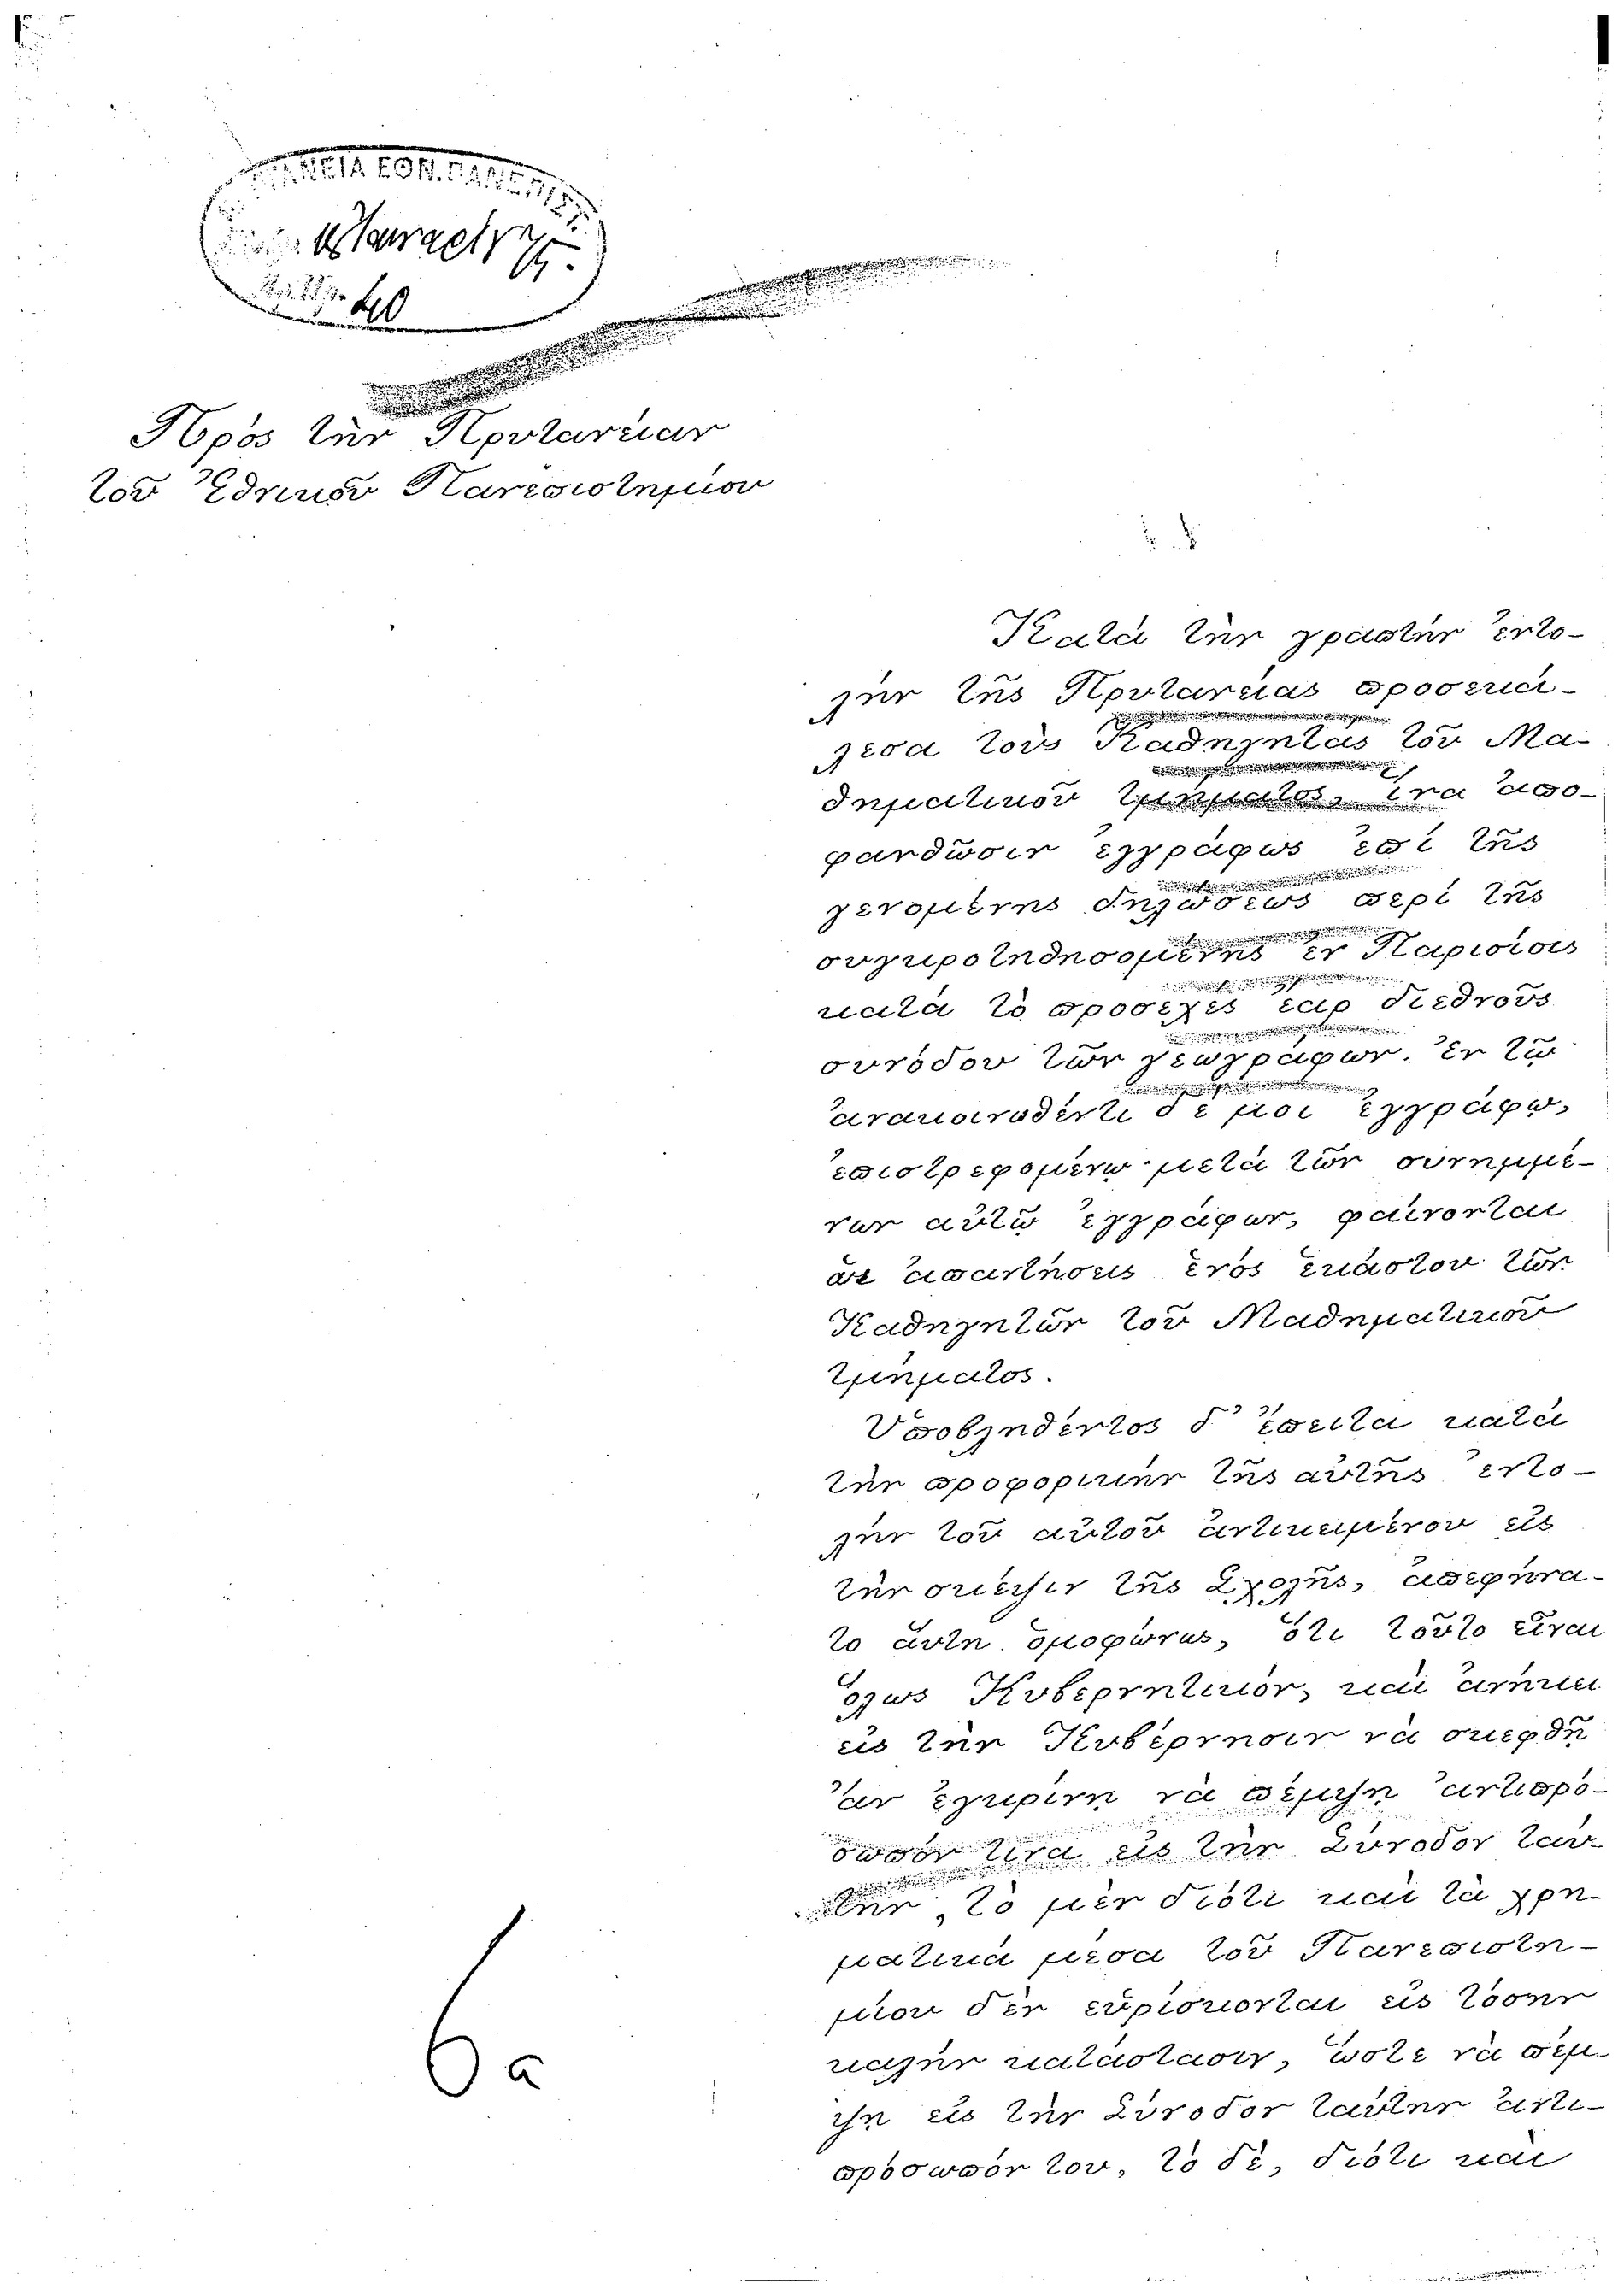 Πρὸς τὴν Πρυτανείαν
τοῦ Ἐθνικοῦ Πανεπιστημίου
Κατὰ τὴν γραπτὴν ἐντο-
λὴν τῆς Πρυτανείας προσεκά-
λεσα τοὺς Καθηγητὰς τοῦ Μα-
θηματικοῦ τμήματος, ἵνα ἀπο-
φανθῶσιν ἐγγράφως ἐπὶ τῆς
γενομένης δηλώσεως περὶ τῆς
συγκροτηθησομένης ἐν Παρισίοις
κατὰ τὸ προσεχὲς ἔαρ διεθνοῦς
συνόδου τῶν γεωγράφων. Ἐν τῷ
ἀνακοινωθέντι δέ μοι ἐγγράφῳ,
ἐπιστρεφομένῳ μετὰ τῶν συνημμέ-
νων αὐτῷ ἐγγράφων, φαίνονται
αἱ ἀπαντήσεις ἑνὸς ἑκάστου τῶν
Καθηγητῶν τοῦ Μαθηματικοῦ
τμήματος.
Ὑποβληθέντος δ' ἔπειτα κατὰ
τὴν προφορικὴν τῆς αὐτῆς ἐντο-
λὴν τοῦ αὐτοῦ ἀντικειμένου εἰς
τὴν σκέψιν τῆς Σχολῆς, ἀπεφήνα-
το αὕτη ὁμοφώνως, ὅτι τοῦτο εἶναι
ὅλως Κυβερνητικόν, καὶ ἀνήκει
εἰς τὴν Κυβέρνησιν νὰ σκεφθῇ
ἂν ἐγκρίνῃ νὰ πέμψῃ ἀντιπρό-
σωπόν τινα εἰς τὴν Σύνοδον ταύ-
την, τὸ μὲν διότι καὶ τὰ χρη-
ματικὰ μέσα τοῦ Πανεπιστη-
μίου δὲν εὑρίσκονται εἰς τόσην
καλὴν κατάστασιν, ὥστε νὰ πέμ-
ψῃ εἰς τὴν Σύνοδον ταύτην ἀντι-
πρόσωπόν του, τὸ δὲ, διότι καὶ
6a